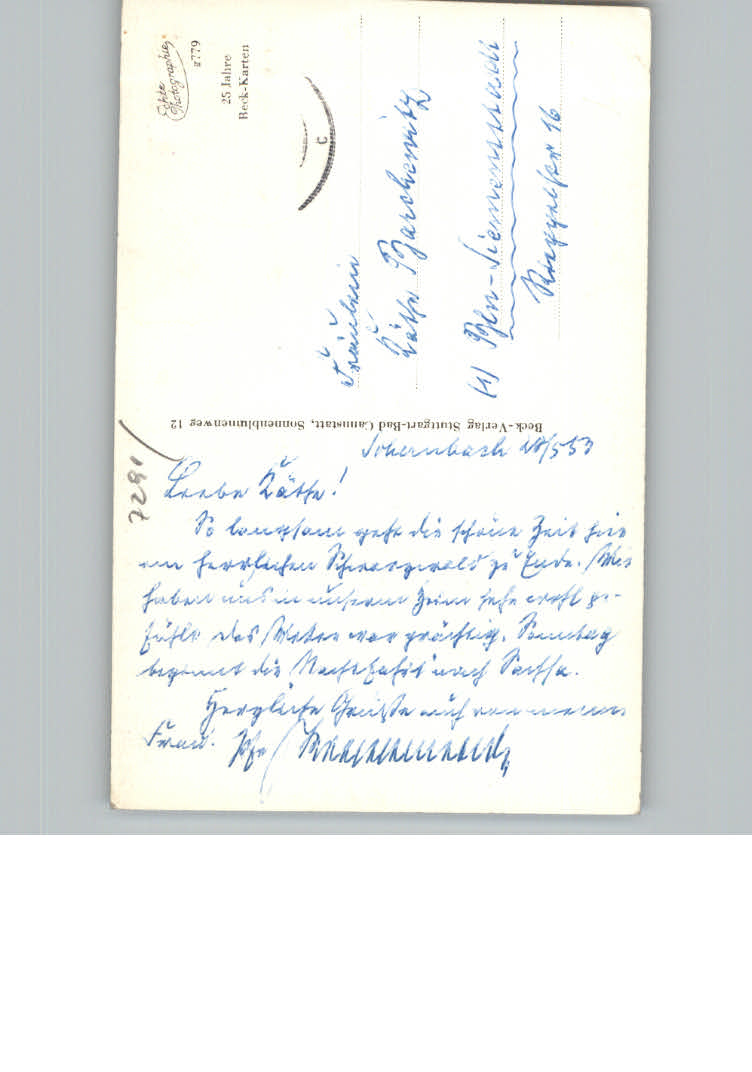 Echte
Photographie
g779
25 Jahre
Beck-Karten
C
Fräulein
Käthe Barchewitz
(1) Bln-Siemensstadt
Rieppelstr 16
Beck-Verlag Stuttgart-Bad Cannstatt, Sonnenblumenweg 12
7291
28/5 53
Liebe Käthe!
So langsam geht die schöne Zeit hier
im herrlichen Schwarzwald zu Ende. Wir
haben uns in unserem Heim sehr wohl ge-
fühlt das Wetter war prächtig. Sonntag
beginnt die nach
Herzliche Grüße auch von meiner
Frau. Ihr